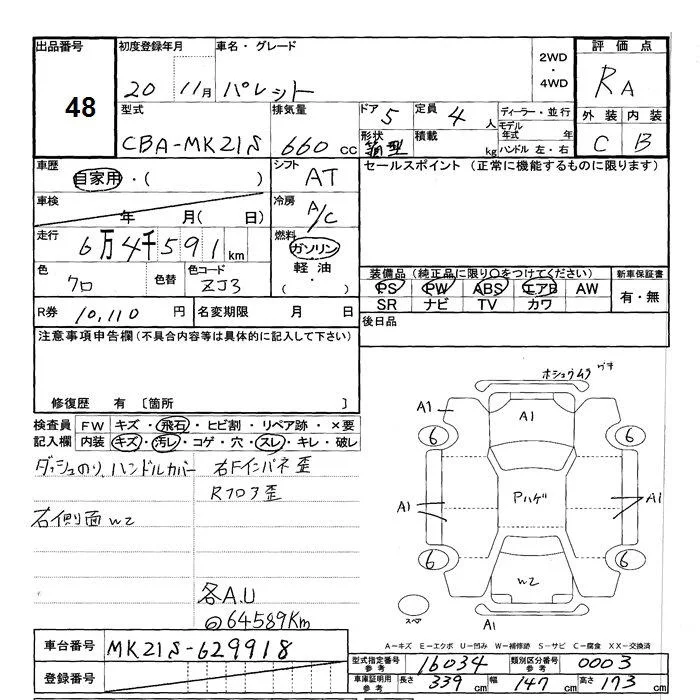 出品番号
48
初度登録年月
20 11月
車名・グレード
パレット
2WD
・
4WD
評価点
RA
外装 内装
C B
型式
CBA-MK21S
排気量
660 cc
ドア 5
定員 4 人
形状 箱型
積載 kg
ディーラー・並行
モデル年式 年
ハンドル 左・右
車歴
自家用・( )
シフト
AT
セールスポイント (正常に機能するものに限ります)
車検
年 月( 日)
冷房
A/C
走行
6万4千591km
燃料
ガソリン
軽油
・
( )
色
クロ
色替
色コード
ZJ3
装備品(純正品に限り○をつけてください)
PS PW ABS エアB AW
SR ナビ TV カワ
新車保証書
有・無
R券 10,110 円
名変期限 月 日
後日品
注意事項申告欄(不具合内容等は具体的に記入して下さい)
修復歴 有 〔箇所 〕
検査員記入欄
FW キズ・飛石・ヒビ割・リペア跡・×要
内装 キズ・汚レ・コゲ・穴・スレ・キレ・破レ
ダッシュのり、ハンドルカバー
右Fインパネ歪
Rフロア歪
右側面W2
各A.U
◎64589Km
ホシュウムラ
A1
A1
6 6
A1
Pハゲ
A1
6 6
W2
スペア
A1
A-キズ E-エクボ U-凹み W-補修跡 S-サビ C-腐食 XX-交換済
車台番号
MK21S-629918
登録番号
型式指定番号参考
16034
類別区分番号参考
0003
車庫証明用参考
長さ 339 cm 幅 147 cm 高さ 173 cm